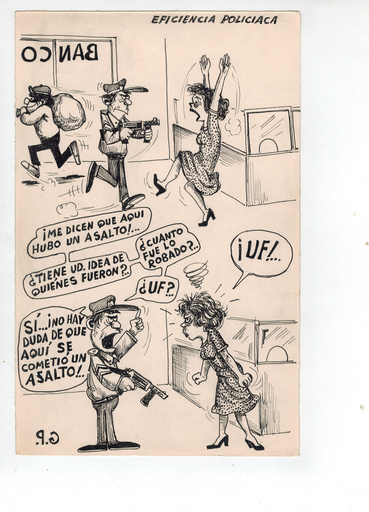 EFICIENCIA POLICIACA
BANCO
¡ME DICEN QUE AQUI
HUBO UN ASALTO!...
¿TIENE UD. IDEA DE
QUIENES FUERON?..
¿CUANTO
FUE LO
ROBADO?..
¿UF?..
¡UF!...
SÍ...¡NO HAY
DUDA DE QUE
AQUÍ SE
COMETIÓ UN
ASALTO!..
G.P.